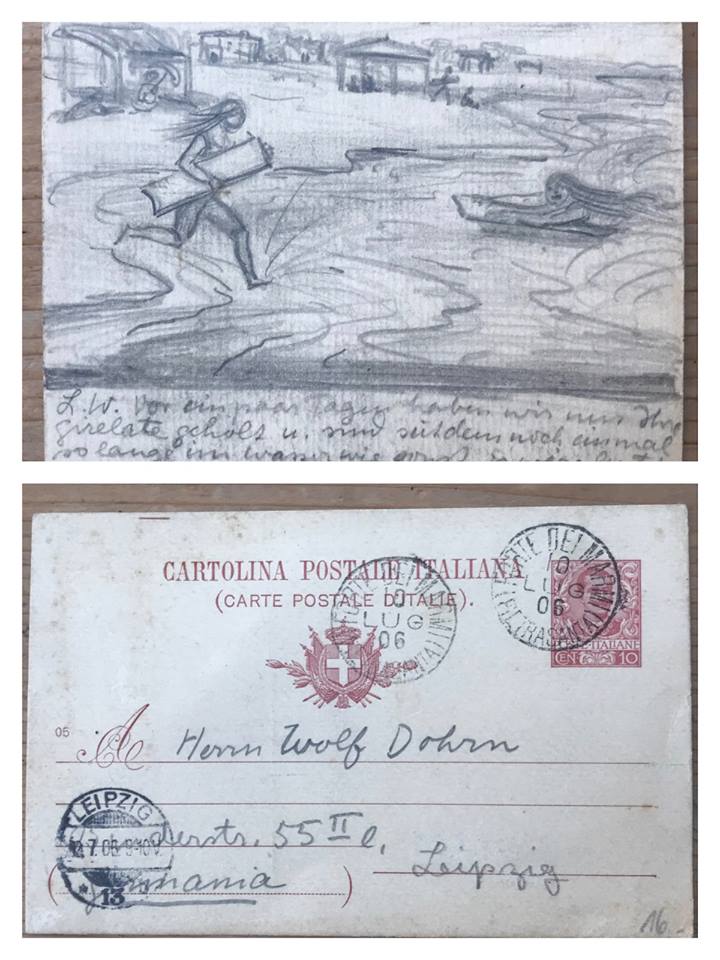 L.W. Vor ein paar Tagen haben wir uns Ihre
girelate geholt u. sind seitdem noch einmal
so lange im Wasser wie sonst
CARTOLINA POSTALE ITALIANA
(CARTE POSTALE D'ITALIE).
FORTE DEI MARMI
10
LUG
06
(PIETRASANTA)
FORTE DEI MARMI
10
LUG
06
(PIETRASANTA)
POSTE ITALIANE
CEN 10
05
A Herrn Wolf Dohrn
LEIPZIG
7.06. 9-10V
13
55 II l.
Leipzig
(Germania)
16